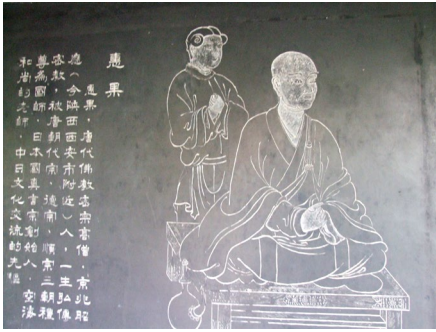 惠果
惠果，唐代佛教密宗高僧，京兆昭
應（今陝西西安市附近）人，一生弘傳
密教，被唐朝代宗、德宗、順宗三朝禮
尊爲國師，日本國真言宗創始人空海
和尚的老師，中日文化交流的先驅